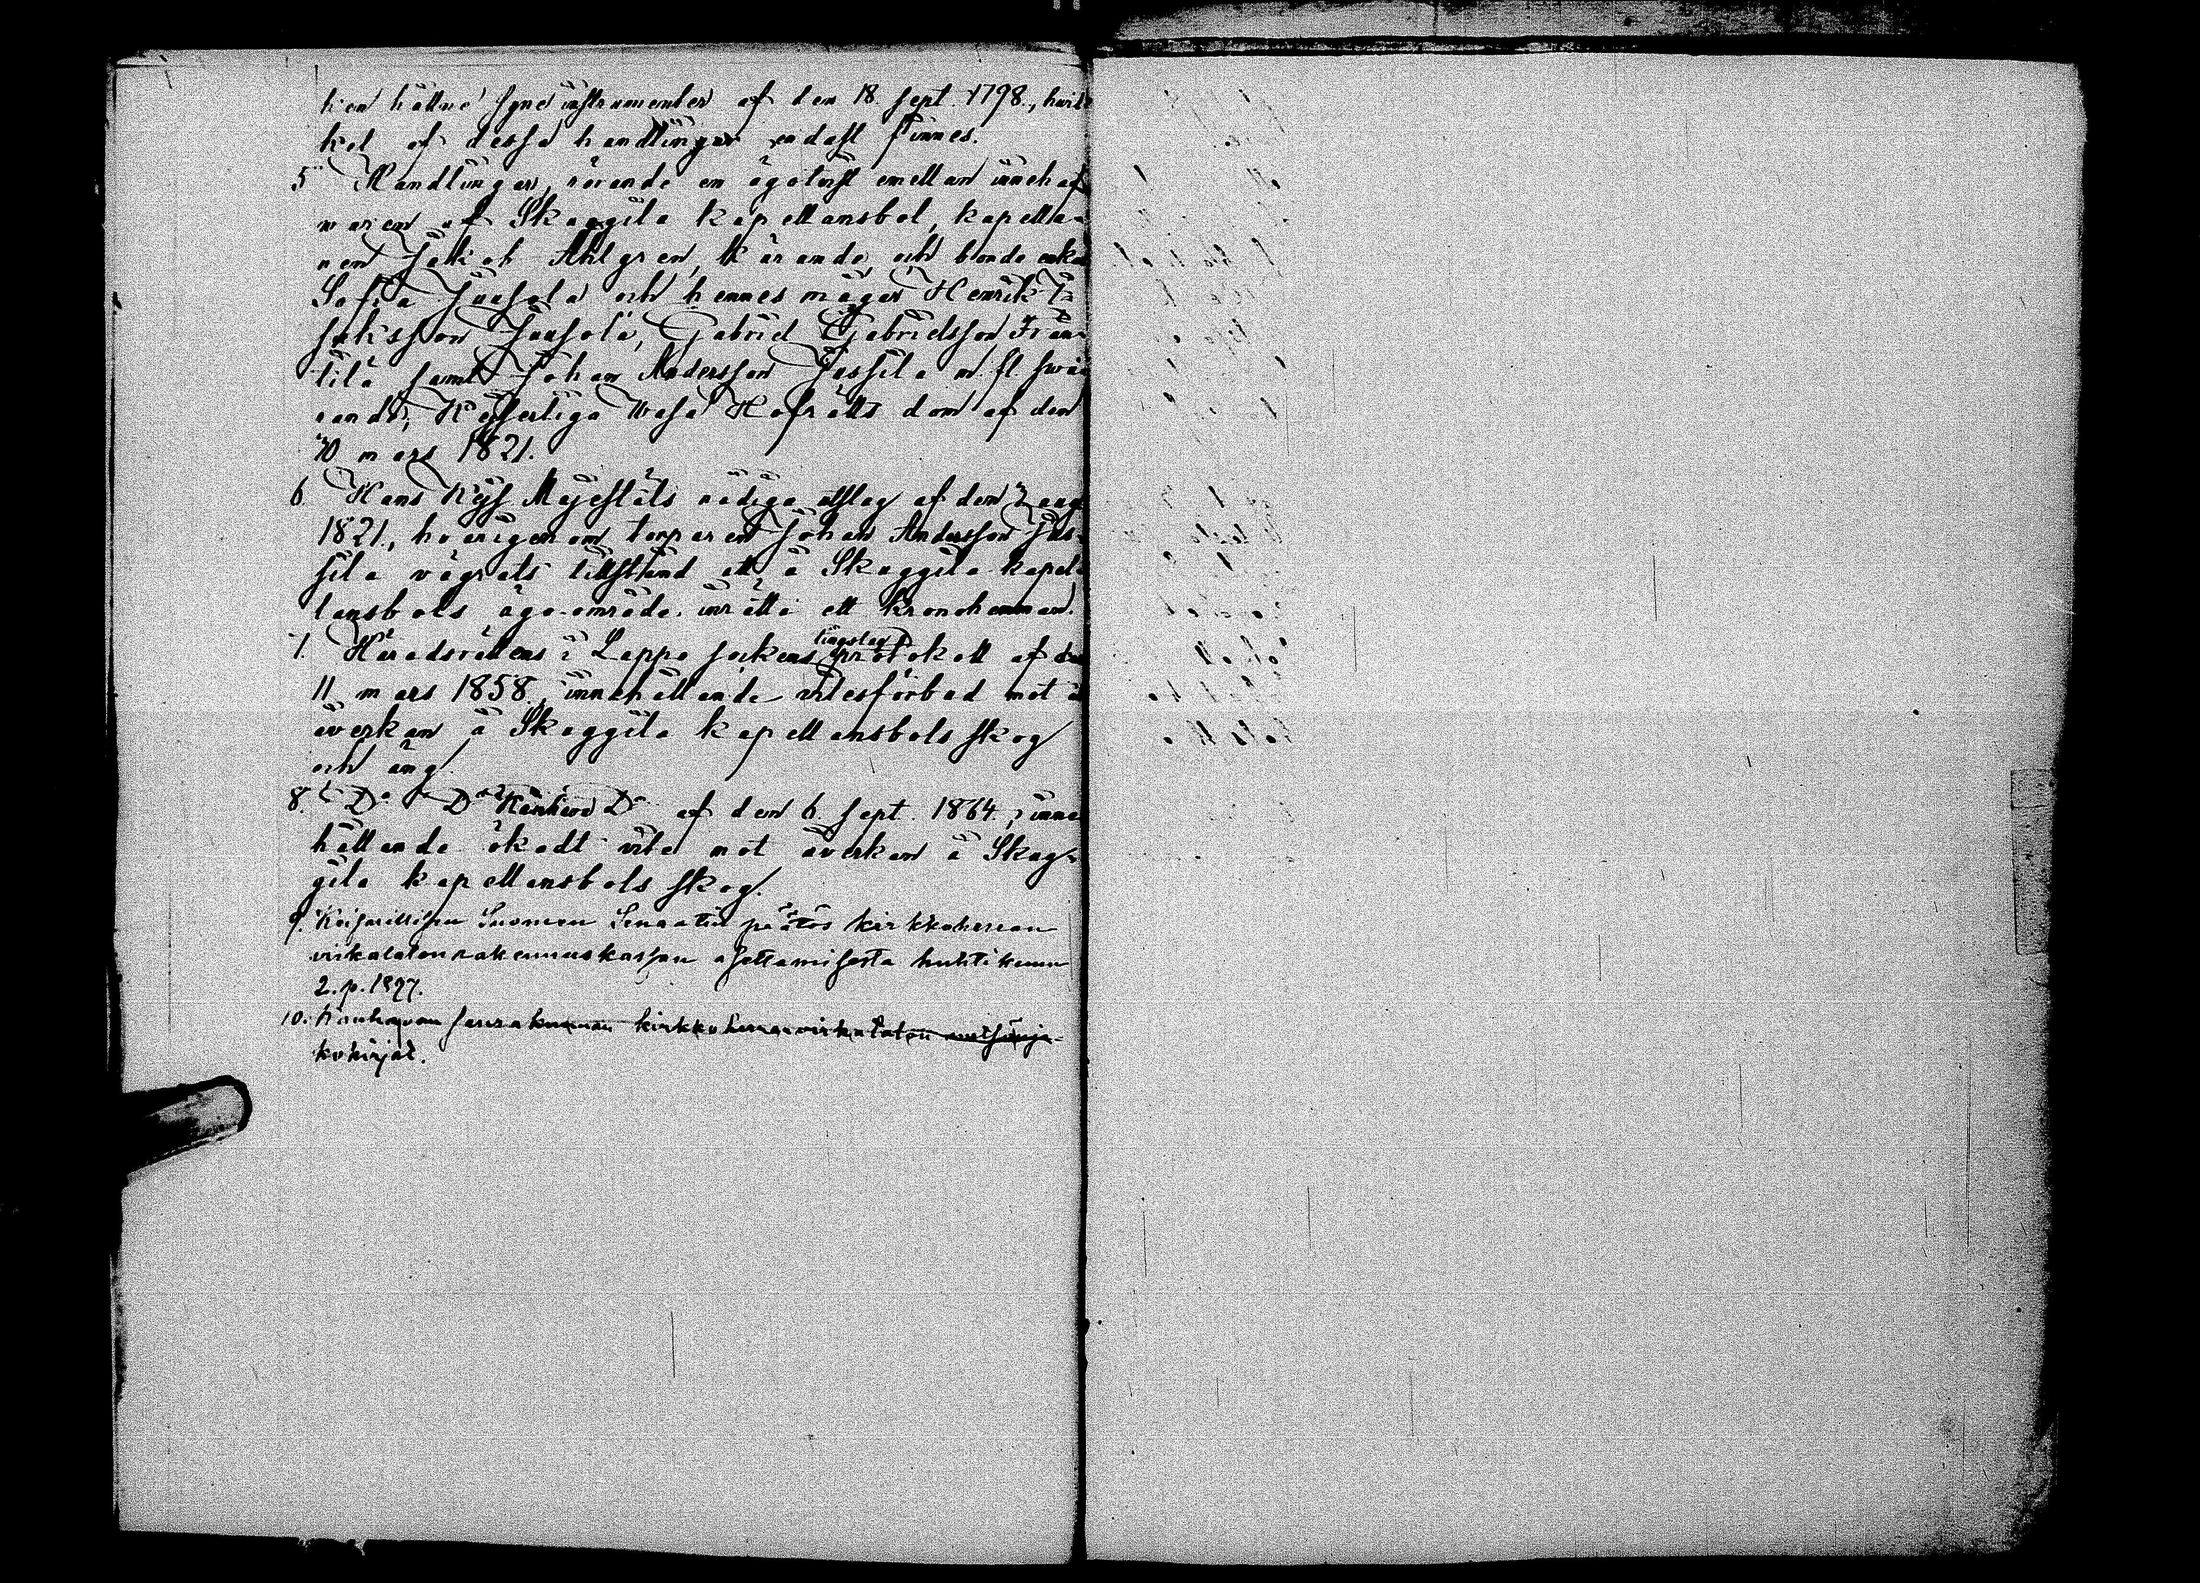 hon hållne syneinstrumentet af den 18 sept. 1798., hwil-
ket af dessa handlingar endast finnes.
5 Handlingar, rörande en ägotvist emellan innehaf
waren af Skaggila kapellansbol, kapella-
nen Jakob Ahlgren, kärande, och bonde enkan
Sofia Jaasola och hennes mågar Henrik I-
saksson Jaasola, Gabriel Gabrielsson Fran-
tila samt Johan Andersson Jussila m. fl. swa-
rande; Kejserliga Wasa Hofrätts dom af den
30 mars 1821.
6. Hans Kejs Majestäts nådiga utslag af den 2 aug
1821., hvarigenom torparen Johan Andersson Jus-
sila vägrats tillstånd att å Skaggila kapel-
lansbols ägo-område inrätta ett kronohemman.
7. Häradsrättens i Lappo sockens tingslag protokoll af den
11 mars 1858., innehållande vitesförbud mot å
åverkan å Skaggila kapellansbols skog
och äng.
8. Do Do Do af den 6 sept. 1864., inne
hållande ökadt vite mot åverkan å Skag-
gila kapellansbols skog.
9. Keisarillisen Suomen Senaatin päätös kirkkoherran
virkatalon rakennuskassan asettamisesta huhtikuun
2. p. 1897.
10. Kauhavan seurakunnan kirkkoherranvirkatalon metsänja-
kokirjat.